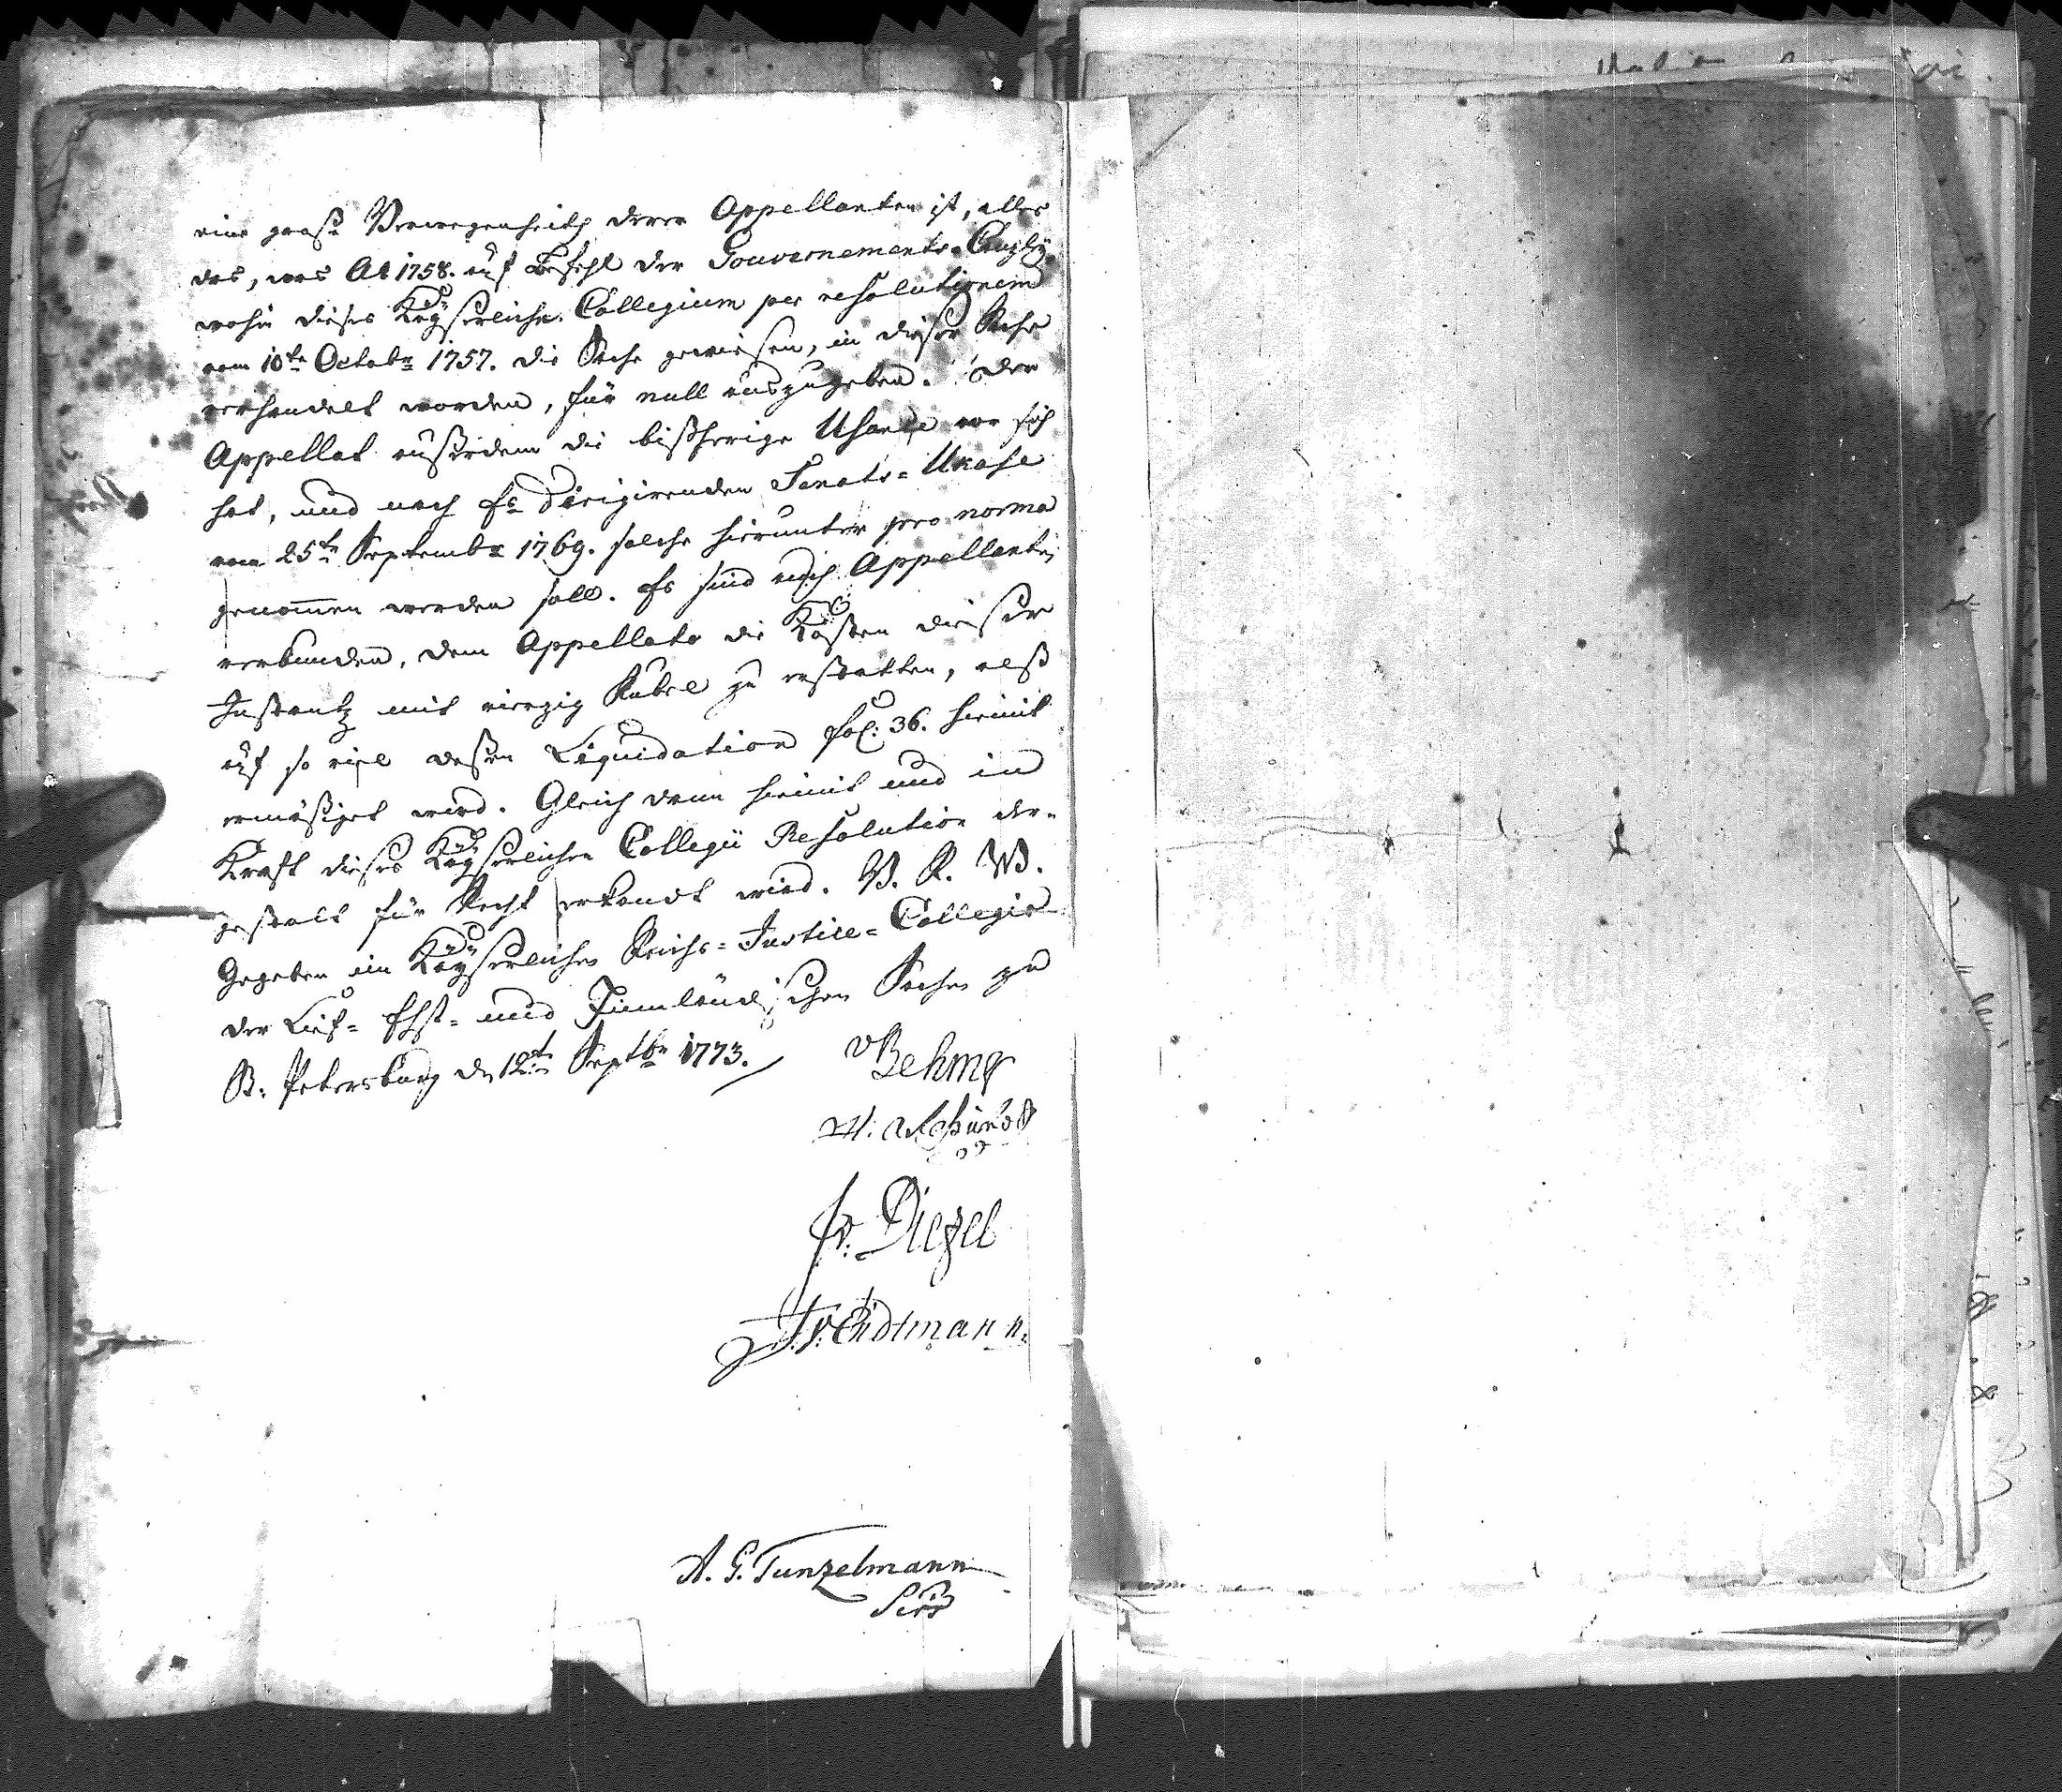 eine große Verwegenheith derer Appellanten ist, alles
das, was Aô 1758. auf Befehl der Gouvernements-Canzley
wohin dieses Kayserliche Collegium per resolutionem
vom 10te Octobr 1757. die Sache gewiesen, in dieser Sache
verhandelt worden, für null auszugeben. der
Appellat außerdem die bißherige Usance vor sich
hat, und nach Es Dirigirenden Senats-Ukase
vom 25te Septembr 1769. solche hierunter pro norma
genommen werden soll. Es sind auch Appellanten
verbunden, dem Appellato die Kosten dieser
Instantz mit vierzig Rubel zu erstatten, alß
auf so viel deßen Liquidation fol: 36. hiemit
ermäßiget wird. Gleich denn hiemit und in
Krafft dieses Kayserlichen Collegii Resolution der-
gestalt für Recht erkandt wird. V. R. W.
Gegeben im Kayserlichen Reichs-Justice-Collegio
der Lief- Ehst- und Finnländischen Sachen zu
St. Petersburg den 12te Septbr 1773.
vBehmer
v. Diezel
Tv. Endtmann
A. G. Tunzelmann
Secr